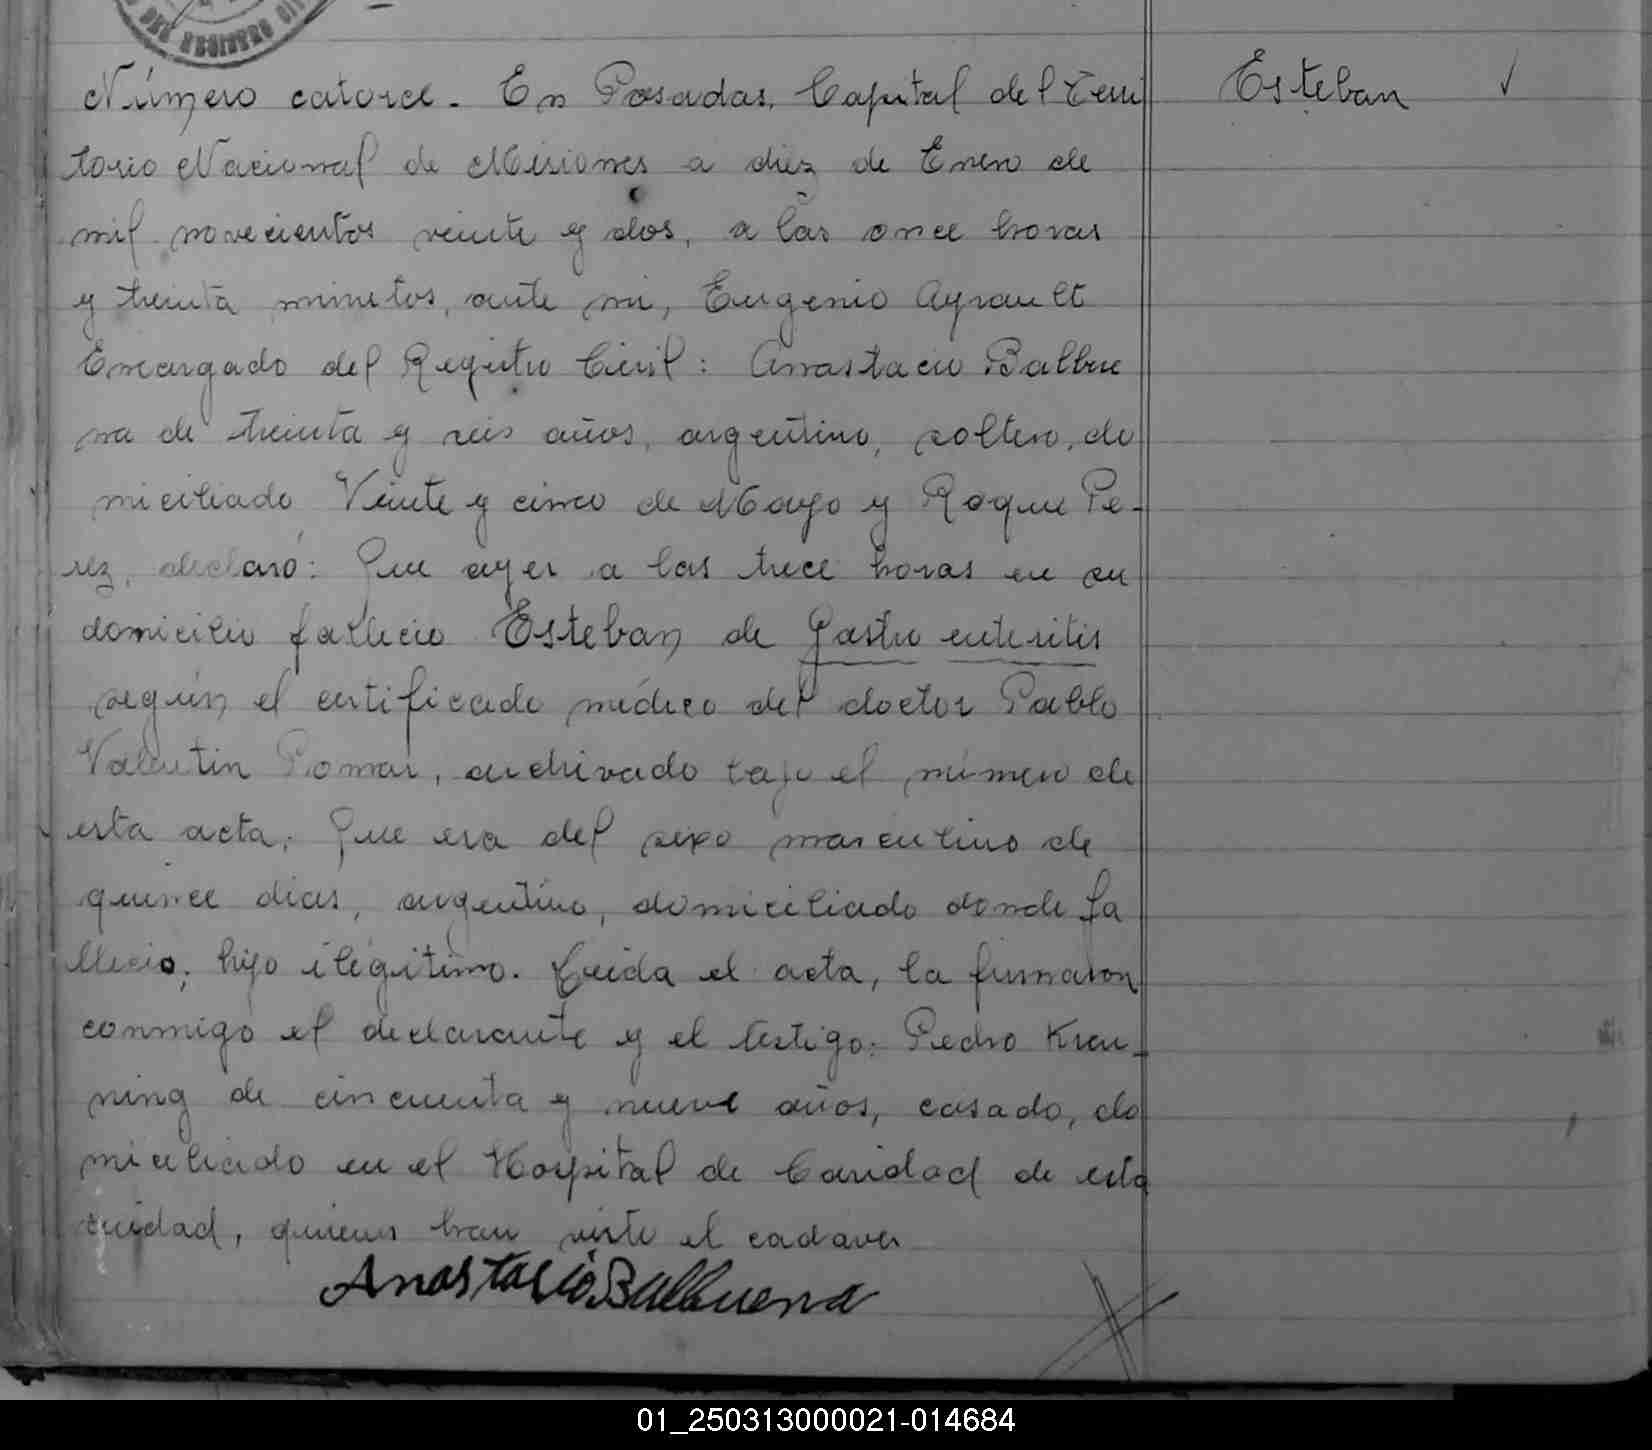 DEL REGISTRO CIV
Número catorce. En Posadas, Capital del Terri Esteban ✓
torio Nacional de Misiones a diez de Enero de
mil novecientos veinte y dos, a las once horas
y treinta minutos, ante mi, Eugenio Ayrault
Encargado del Registro Civil: Anastacio Balbue
na de treinta y seis años, argentino, soltero, do
miciliado Veinte y cinco de Mayo y Roque Pe-
rez, declaró: Que ayer a las trece horas en su
domicilio fallecio Esteban de gastro enteritis
según el certificado médico del doctor Pablo
Valentin Pomar, archivado bajo el número de
esta acta. Que era del sexo masculino de
quince dias, argentino, domiciliado donde fa
llecio; hijo ilégitimo. Leida el acta, la firmaron
conmigo el declarante y el testigo: Pedro Kreu-
ning de cincuenta y nueve años, casado, do
miciliado en el Hospital de Caridad de esta
cuidad, quienes han visto el cadaver
Anastacio Balbuena
01_250313000021-014684